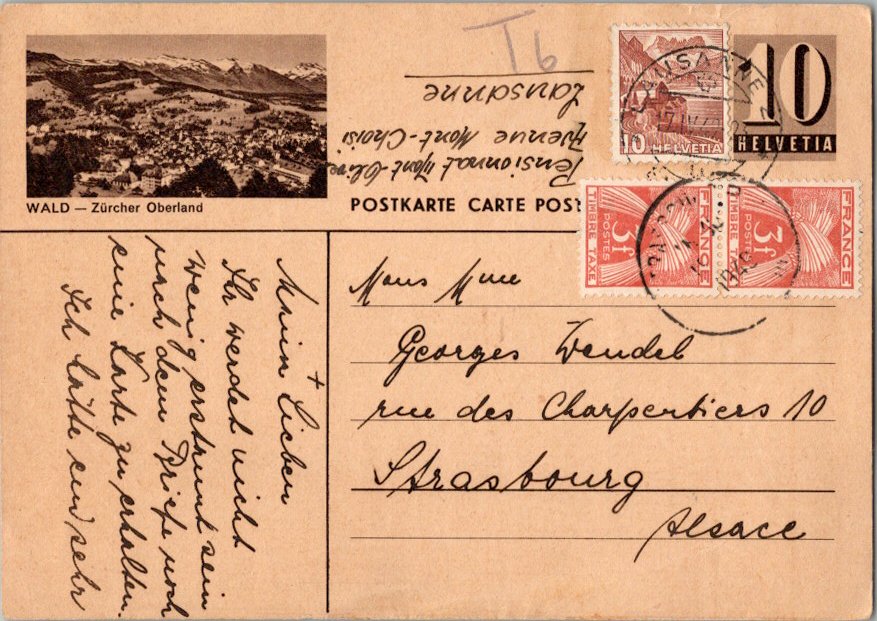 T 6
10
HELVETIA
10
HELVETIA
LAUSANNE
Pensionnat Mont-Olivet
Avenue Mont-Choisi
Lausanne
WALD — Zürcher Oberland
POSTKARTE CARTE POST
FRANCE
3f
POSTES
TIMBRE TAXE
FRANCE
3f
POSTES
TIMBRE TAXE
1949
Mons Mme
Georges Wendel
rue des Charpentiers 10
Strasbourg
Alsace
Lieben
Ihr werdet nicht
wenig erstaunt sein
nach dem Briefe noch
eine Karte zu erhalten.
Ich hätte euch sehr